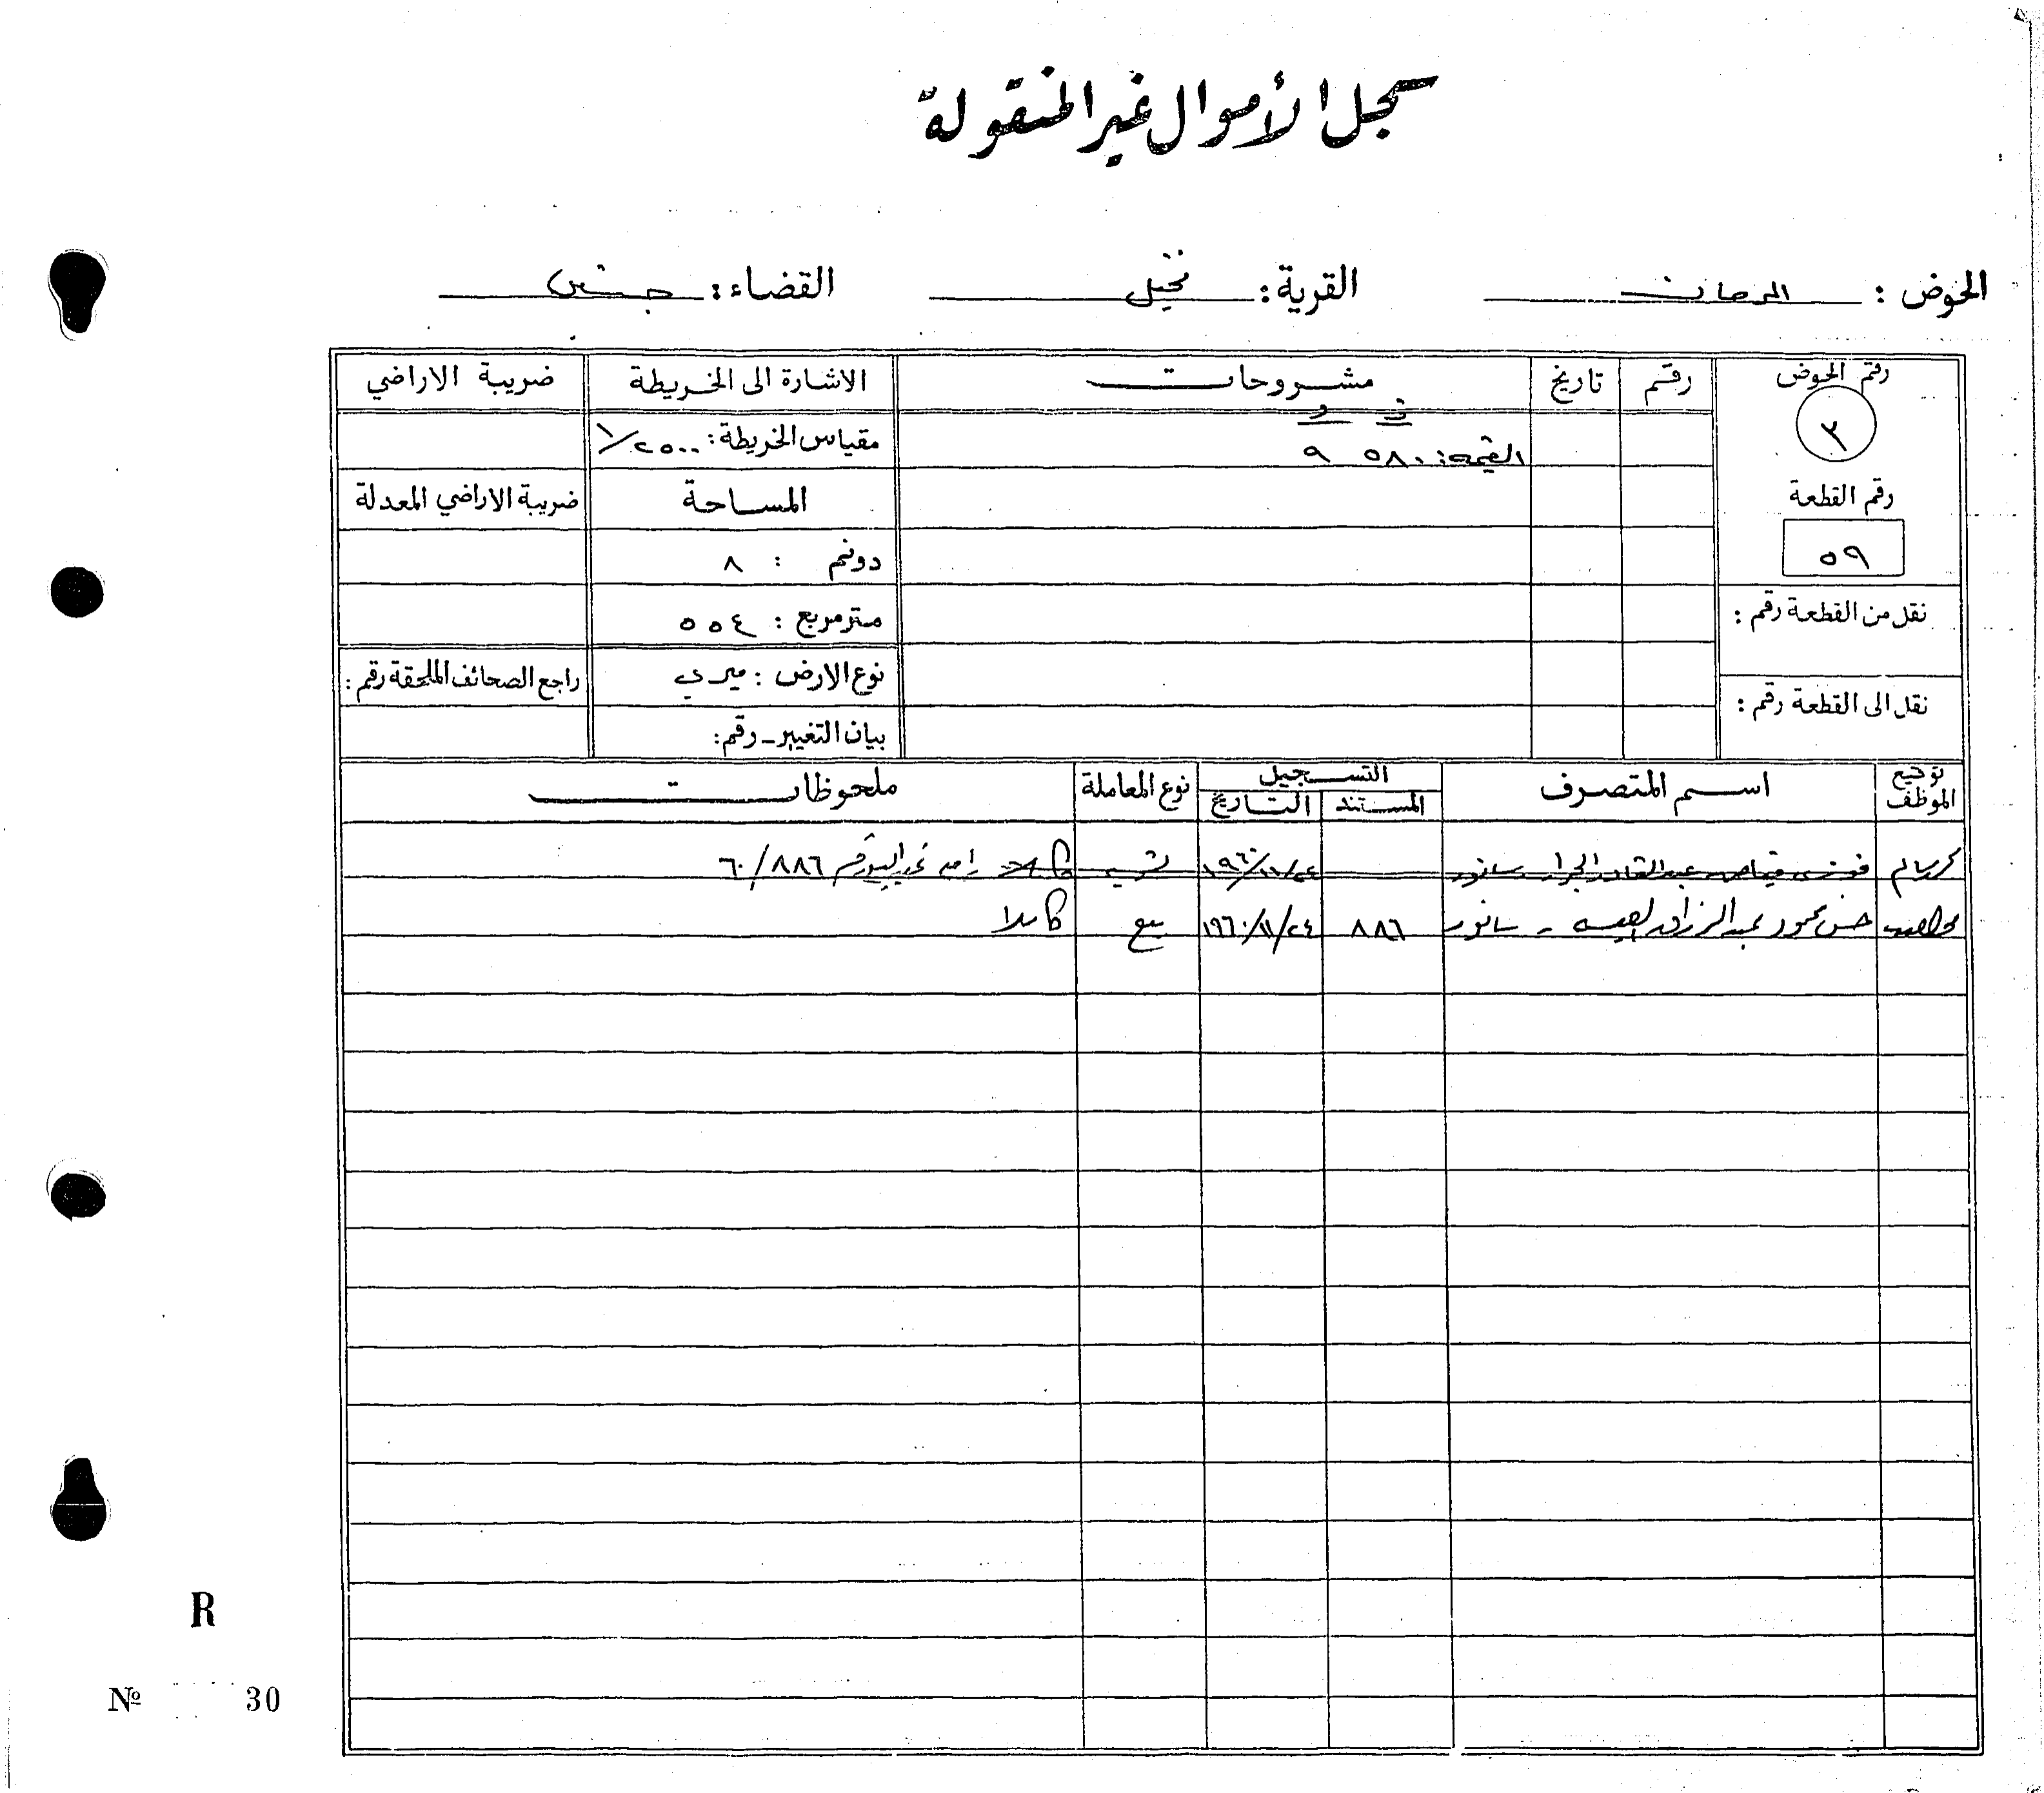 سجل الأموال غير المنقولة
الحوض : القرية : القضاء : جنين
رقم الحوض رقم تاريخ مشروحات الاشارة الى الخريطة ضريبة الاراضي
٢
ف د
القيمة : ٥٨٠ ٩
مقياس الخريطة : ١/٢٥٠٠
رقم القطعة
المساحة
ضريبة الاراضي المعدلة
٥٩
دونم : ٨
نقل من القطعة رقم :
متر مربع : ٥٥٤
نوع الارض : ميري
راجع الصحائف الملحقة رقم :
نقل الى القطعة رقم :
بيان التغيير - رقم :
توقيع الموظف اسم المتصرف التسجيل نوع المعاملة ملحوظات
المستند التاريخ
عبد القادر الجرار سانور كاملا ٦٠/٨٨٦
حسن محمود عبد الرزاق - سانور ٨٨٦ ١٩٦٠/١١/٢٤ بيع كاملا
R
№ 30